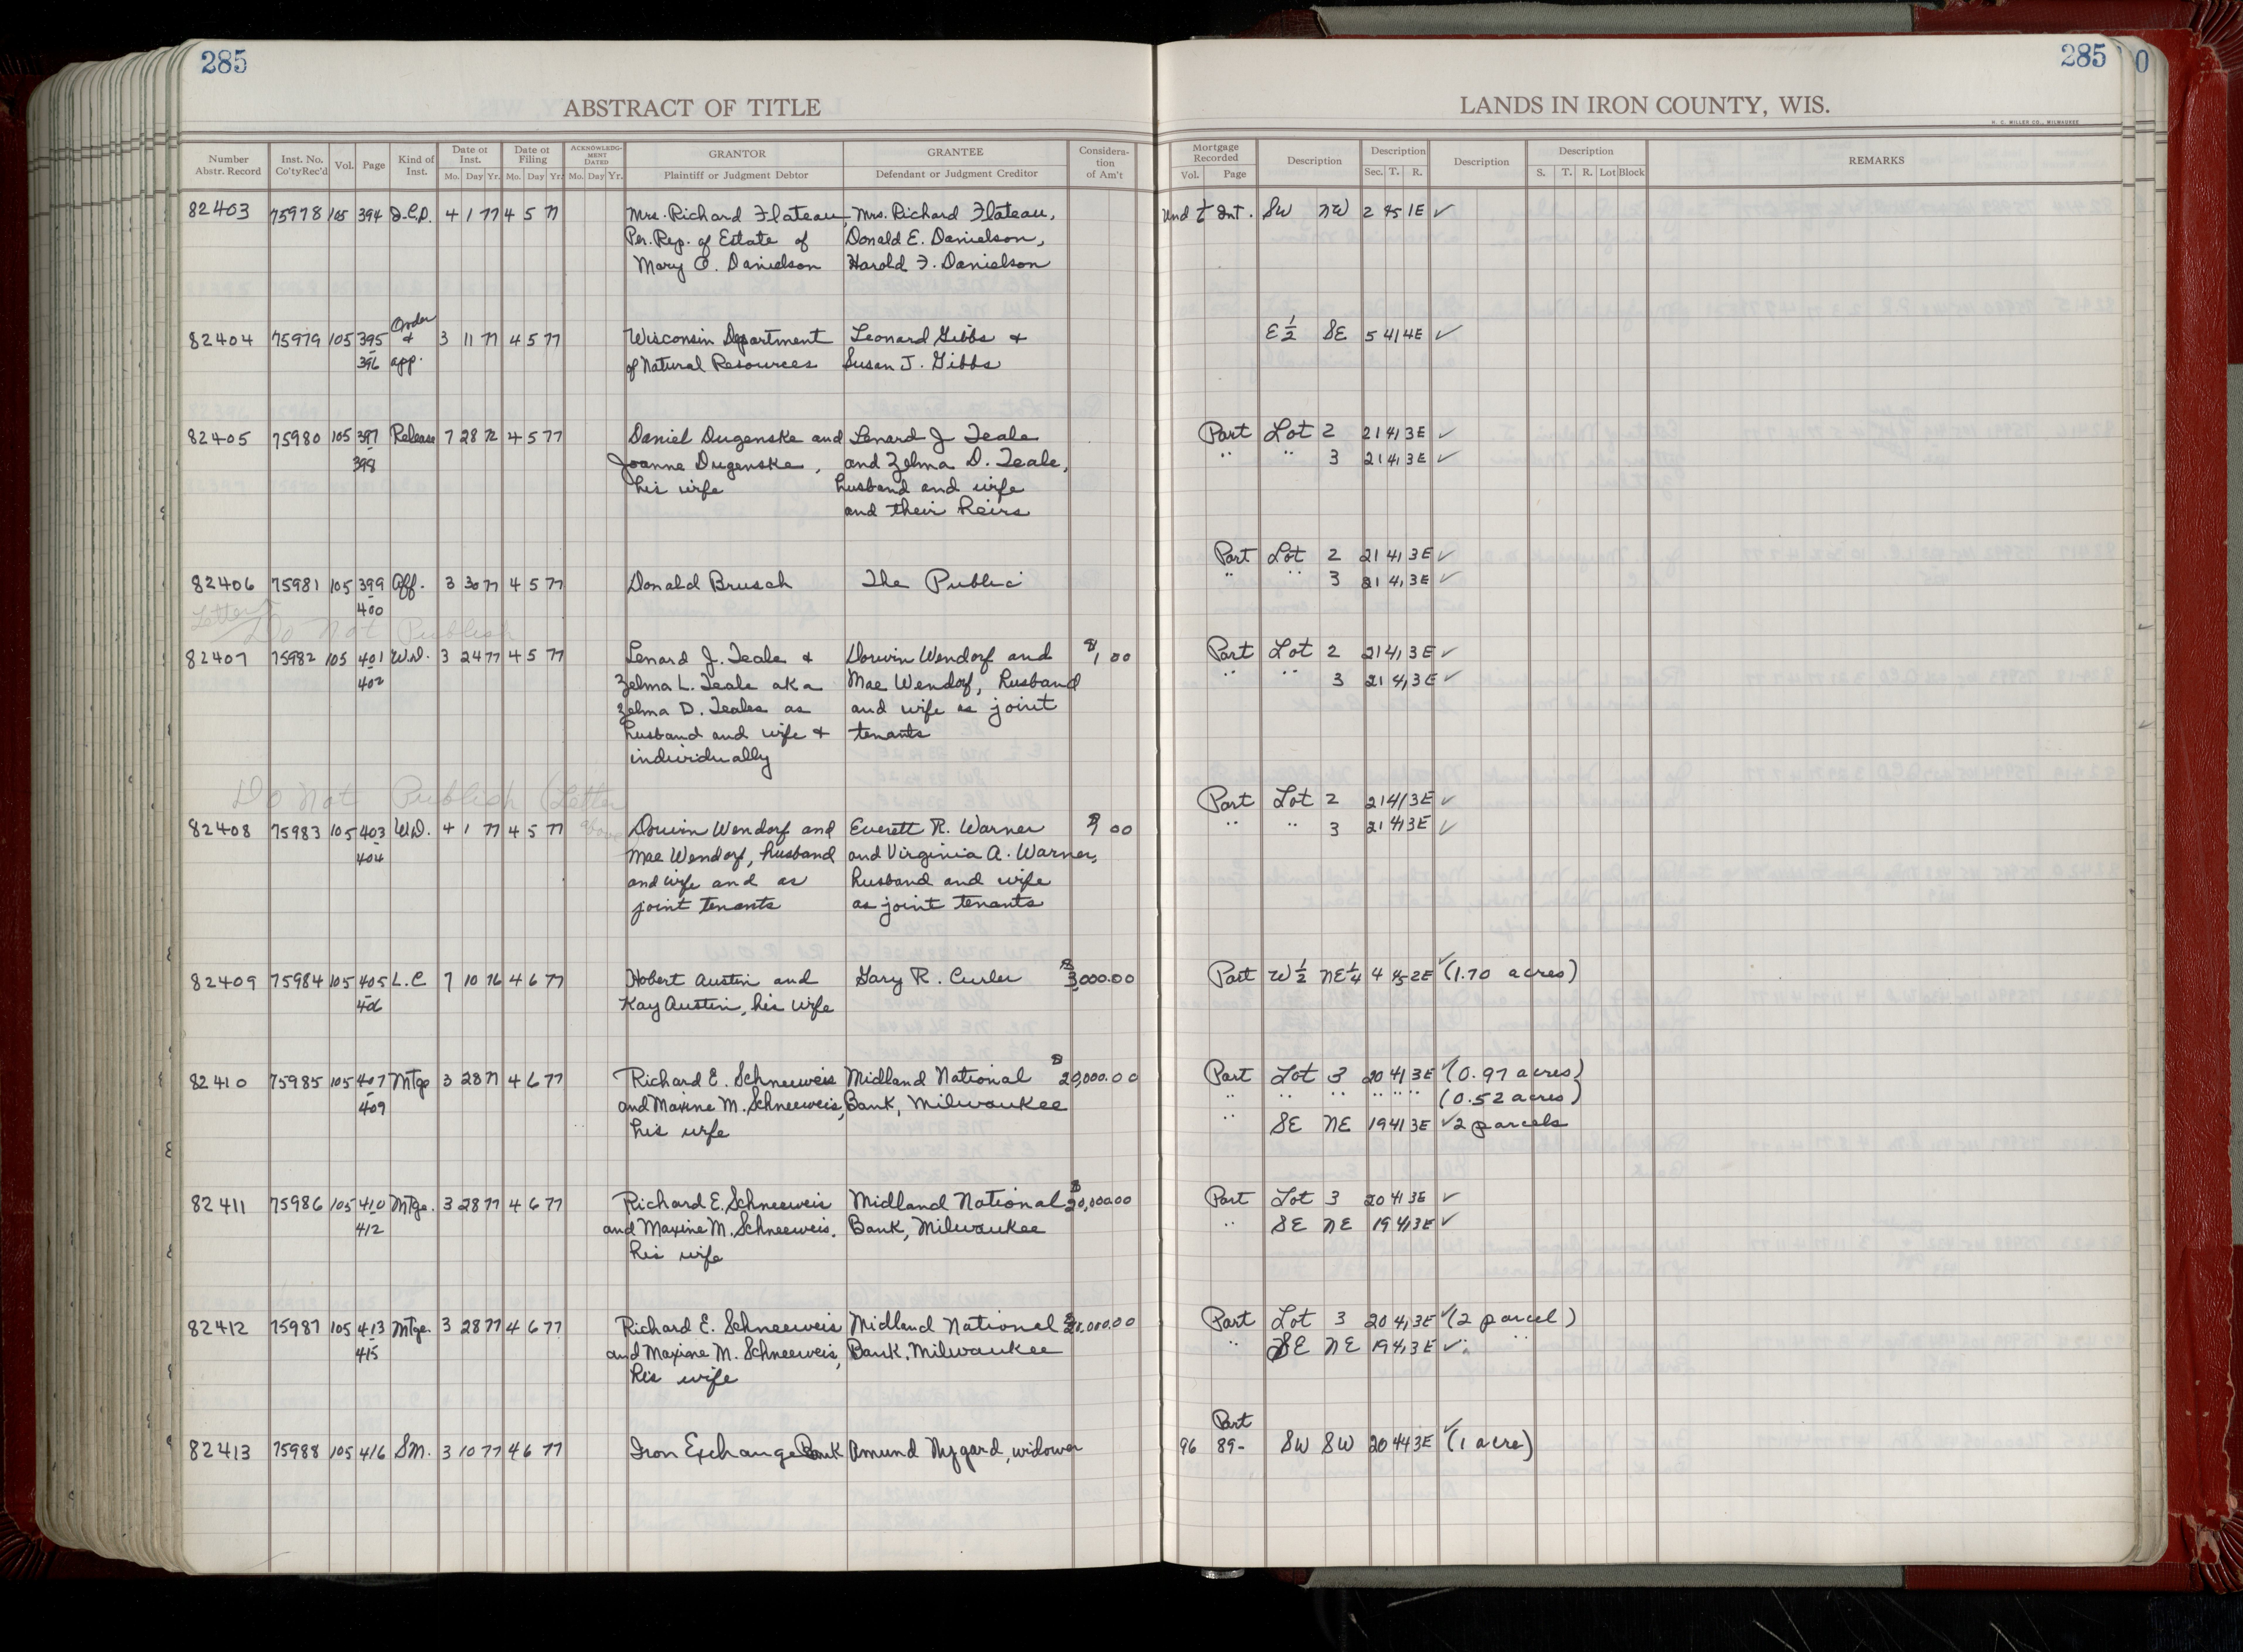 285
285
0
ABSTRACT OF TITLE
LANDS IN IRON COUNTY, WIS.
H. C. MILLER CO., MILWAUKEE
Number Abstr. Record | Inst. No. Co'ty Rec'd | Vol. | Page | Kind of Inst. | Date of Inst. Mo. Day Yr. | Date of Filing Mo. Day Yr. | ACKNOWLEDGMENT DATED Mo. Day Yr. | GRANTOR Plaintiff or Judgment Debtor | GRANTEE Defendant or Judgment Creditor | Consideration of Am't | Mortgage Recorded Vol. Page | Description | Description Sec. T. R. | Description | Description S. T. R. Lot Block | REMARKS
82403 75978 105 394 4 1 77 4 5 77 Mrs. Richard Flateau, Mrs. Richard Flateau, Und Int. SW NW 2 45 1E ✓
Per. Rep. of Estate of Donald E. Danielson,
Mary O. Danielson Harold F. Danielson
Order
82404 75979 105 395 & 3 11 77 4 5 77 Wisconsin Department Leonard Gibbs & E½ SE 5 41 4E ✓
396 app. of Natural Resources Susan J. Gibbs
82405 75980 105 397 Release 7 28 72 4 5 77 Daniel Dugenske and Lenard J Teale Part Lot 2 21 41 3E ✓
398 Joanne Dugenske, and Zelma D. Teale, " " 3 21 41 3E ✓
his wife husband and wife
and their heirs
Part Lot 2 21 41 3E ✓
82406 75981 105 399 Aff. 3 30 77 4 5 77 Donald Brusch The Public " " 3 21 41 3E ✓
400
Letter
Do Not Publish
82407 75982 105 401 W.D. 3 24 77 4 5 77 Lenard J. Teale & Dorwin Wendorf and $1 00 Part Lot 2 21 41 3E ✓
402 Zelma L. Teale aka Mae Wendorf, husband " " 3 21 41 3E ✓
Zelma D. Teales as and wife as joint
husband and wife & tenants
individually
Do Not Publish (Letter above
Part Lot 2 21 41 3E ✓
82408 75983 105 403 W.D. 4 1 77 4 5 77 Dorwin Wendorf and Everett R. Warner $1 00 " " 3 21 41 3E ✓
404 Mae Wendorf, husband and Virginia A. Warner,
and wife and as husband and wife
joint tenants as joint tenants
82409 75984 105 405 L.C 7 10 76 4 6 77 Hobert Austin and Gary R. Curler $3,000.00 Part W½ NE¼ 4 45 2E ✓ (1.70 acres)
406 Kay Austin, his wife
82410 75985 105 407 Mtge 3 28 77 4 6 77 Richard E. Schneeweis Midland National $20,000.00 Part Lot 3 20 41 3E ✓ (0.97 acres)
409 and Maxine M. Schneeweis, Bank, Milwaukee " " " " " " (0.52 acres)
his wife " SE NE 19 41 3E ✓ 2 parcels
82411 75986 105 410 Mtge. 3 28 77 4 6 77 Richard E. Schneeweis Midland National $20,000.00 Part Lot 3 20 41 3E ✓
412 and Maxine M. Schneeweis, Bank, Milwaukee " SE NE 19 41 3E ✓
his wife
82412 75987 105 413 Mtge. 3 28 77 4 6 77 Richard E. Schneeweis Midland National Part Lot 3 20 41 3E ✓ (2 parcel)
415 and Maxine M. Schneeweis, Bank, Milwaukee " SE NE 19 41 3E ✓ " "
his wife
Part
82413 75988 105 416 SM. 3 10 77 4 6 77 Iron Exchange Bank Amund Nygard, widower 96 89- SW SW 20 44 3E ✓ (1 acre)